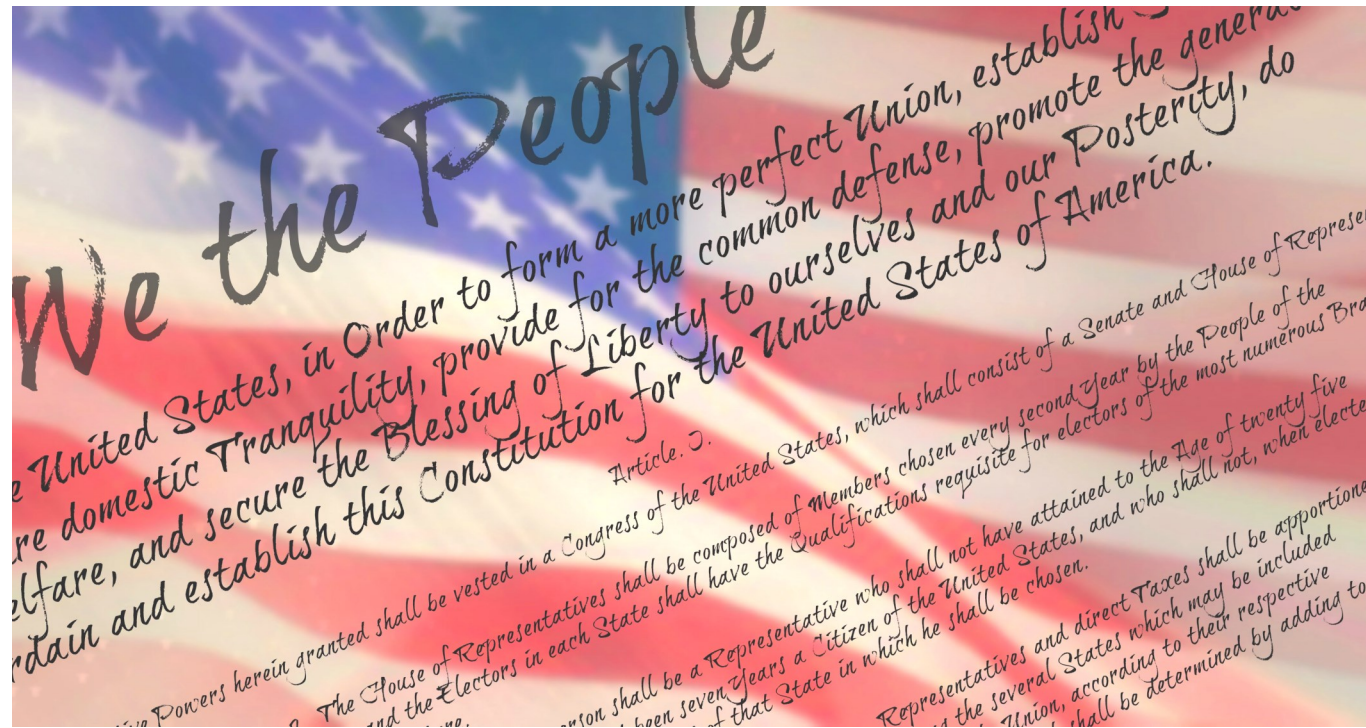 We the People
United States, in Order to form a more perfect Union, establish
domestic Tranquility, provide for the common defense, promote the general
elfare, and secure the Blessing of Liberty to ourselves and our Posterity, do
rdain and establish this Constitution for the United States of America.
Article. I.
Powers herein granted shall be vested in a Congress of the United States, which shall consist of a Senate and House of Represen
The House of Representatives shall be composed of Members chosen every second Year by the People of the
and the Electors in each State shall have the Qualifications requisite for electors of the most numerous Bra
erson shall be a Representative who shall not have attained to the Age of twenty five
been seven Years a Citizen of the United States, and who shall not, when electe
of that State in which he shall be chosen.
Representatives and direct Taxes shall be apportione
the several States which may be included
Union, according to their respective
shall be determined by adding to